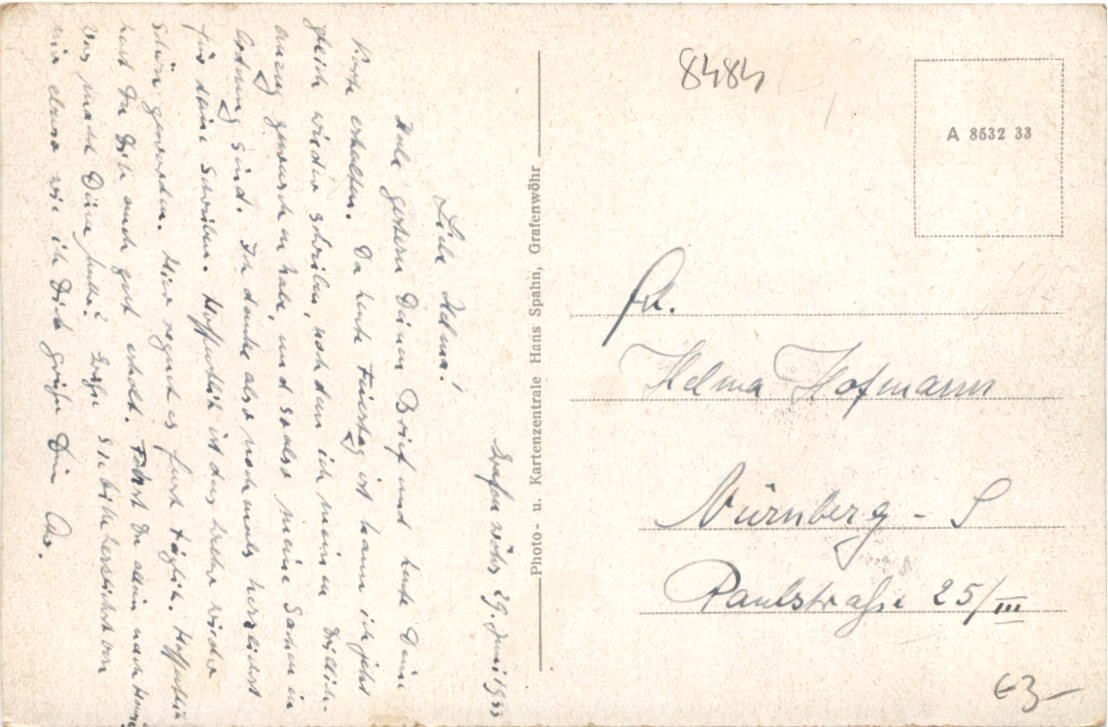 Grafenwöhr 29. Juni 1933
Liebe Helma!
Habe gestern Deinen Brief und heute Deine
Karte erhalten. Da heute Feiertag ist kann ich jetzt
gleich wieder schreiben, nachdem ich meinen Drillich-
anzug gewaschen habe, und so also meine Sachen in
Ordnung sind. Ich danke also nochmals herzlichst
für deine Schreiben. Hoffentlich ist das Wetter wieder
schön geworden. Hier regnet es fast täglich. Hoffentlich
hast Du Dich auch gut erholt. Fährst Du allein nach
Was macht Deine Mutter? Grüße Sie bitte herzlichst von
mir ebenso wie ich Dich grüße Dein
Photo- u. Kartenzentrale Hans Spahn, Grafenwöhr
8484
A 8532 33
Frl.
Helma Hofmann
Nürnberg - S
Paulstraße 25/III
€3-